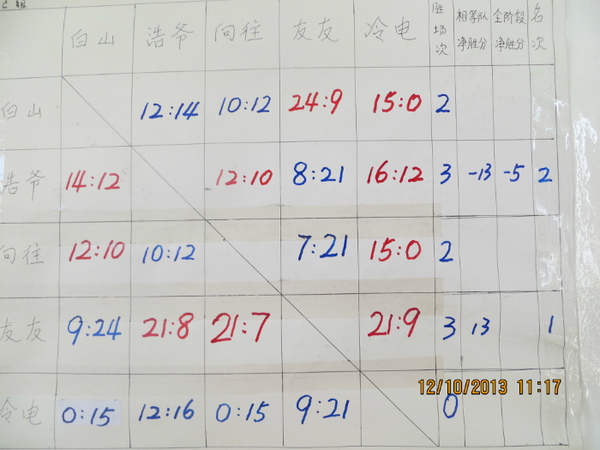 白山 浩爷 向往 友友 冷电 胜场次 相等队净胜分 全阶段净胜分 名次
白山 12:14 10:12 24:9 15:0 2
浩爷 14:12 12:10 8:21 16:12 3 -13 -5 2
向往 12:10 10:12 7:21 15:0 2
友友 9:24 21:8 21:7 21:9 3 13 1
冷电 0:15 12:16 0:15 9:21 0
12/10/2013 11:17